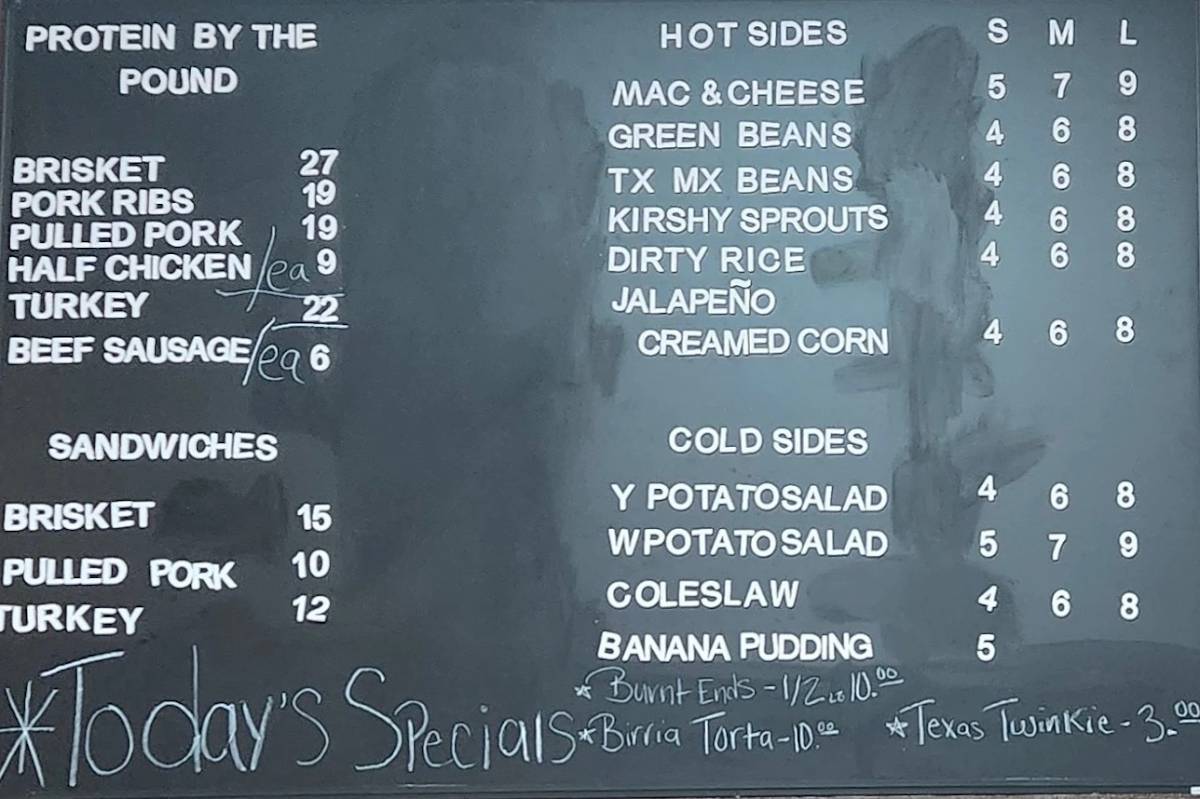 PROTEIN BY THE
POUND
BRISKET 27
PORK RIBS 19
PULLED PORK 19
HALF CHICKEN /ea 9
TURKEY 22
BEEF SAUSAGE /ea 6
SANDWICHES
BRISKET 15
PULLED PORK 10
TURKEY 12
HOT SIDES S M L
MAC & CHEESE 5 7 9
GREEN BEANS 4 6 8
TX MX BEANS 4 6 8
KIRSHY SPROUTS 4 6 8
DIRTY RICE 4 6 8
JALAPEÑO
CREAMED CORN 4 6 8
COLD SIDES
Y POTATO SALAD 4 6 8
W POTATO SALAD 5 7 9
COLESLAW 4 6 8
BANANA PUDDING 5
*Today's Specials
*Burnt Ends - 1/2 LB 10.00
*Birria Torta - 10.00
*Texas Twinkie - 3.00